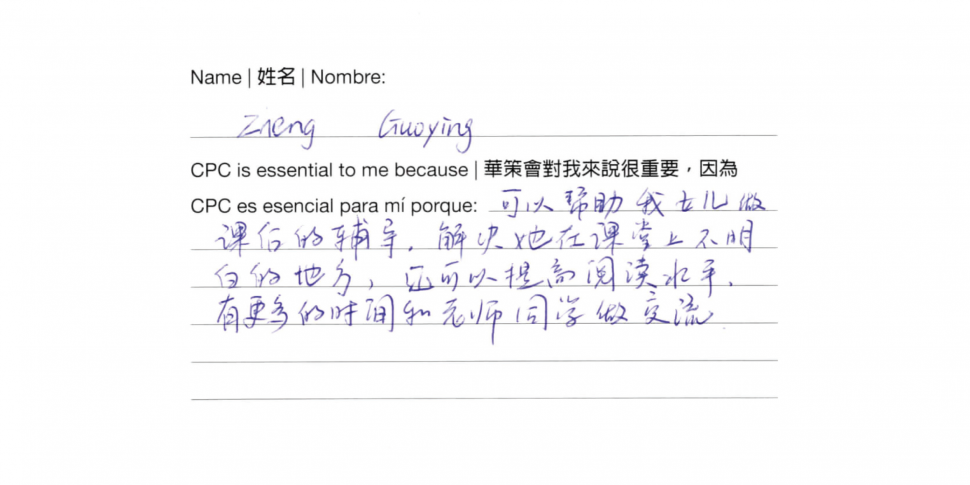 Name | 姓名 | Nombre:
Zheng Guoying
CPC is essential to me because | 華策會對我來說很重要，因為
CPC es esencial para mí porque: 可以帮助我女儿做
课后的辅导，解决她在课堂上不明
白的地方，还可以提高阅读水平，
有更多的时间和老师同学做交流